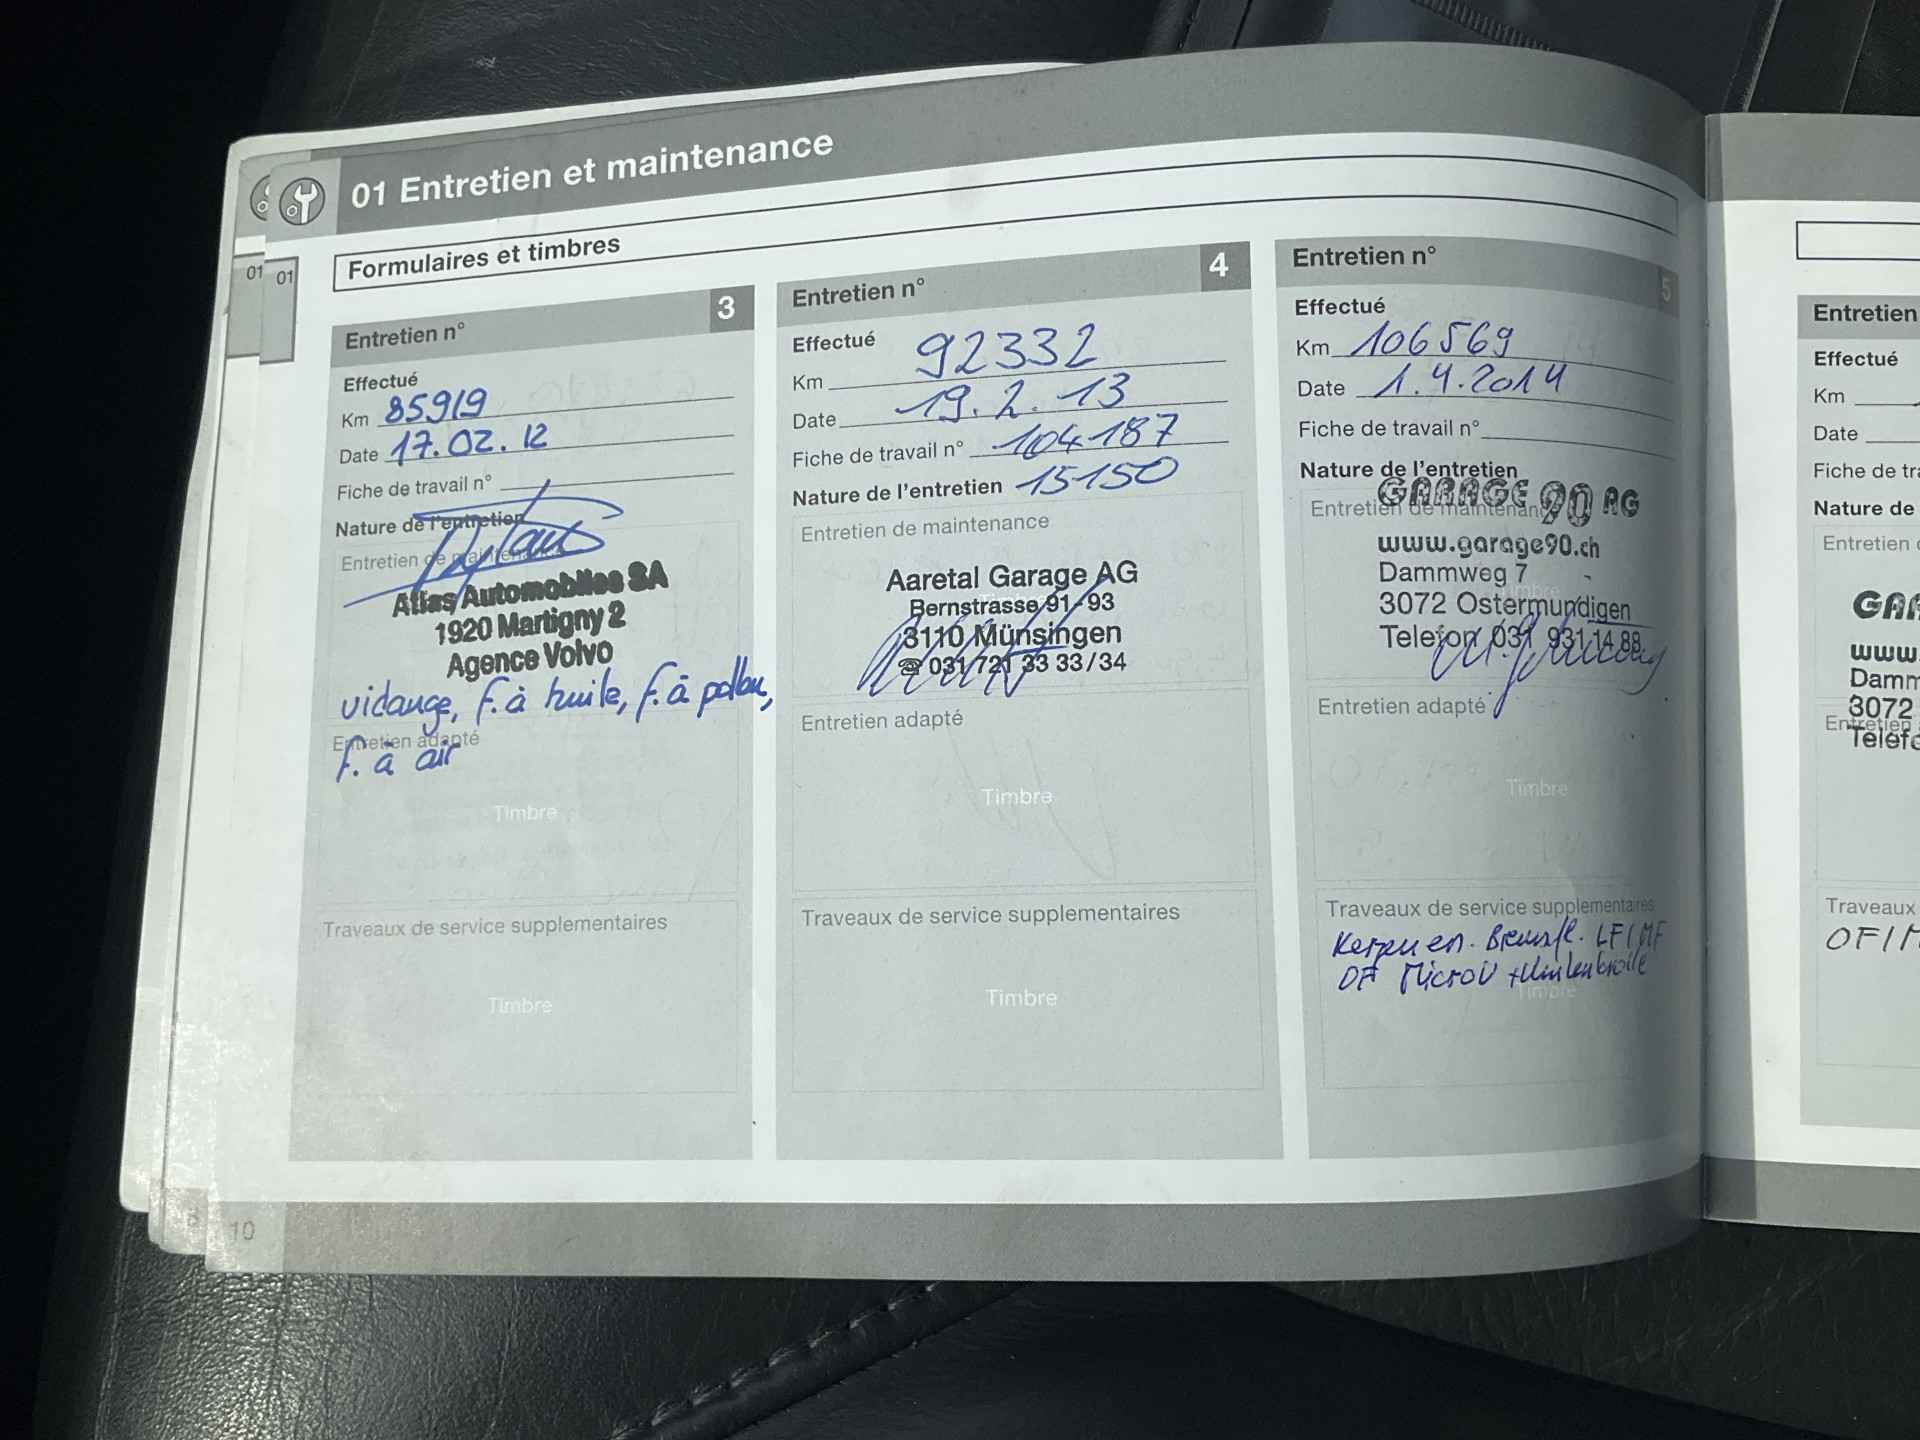 01 Entretien et maintenance
01
01
Formulaires et timbres
Entretien n°
3
Effectué
Km 85919
Date 17.02.12
Fiche de travail n°
Nature de l'entretien
Entretien de maintenance
Atlas Automobiles SA
1920 Martigny 2
Agence Volvo
vidange, f. à huile, f. à pollen,
Entretien adapté
f. à air
Timbre
Traveaux de service supplementaires
Timbre
Entretien n°
4
Effectué
Km 92332
Date 19.2.13
Fiche de travail n° 104187
Nature de l'entretien 15150
Entretien de maintenance
Timbre
Aaretal Garage AG
Bernstrasse 91-93
3110 Münsingen
☎ 031 721 33 33/34
Entretien adapté
Timbre
Traveaux de service supplementaires
Timbre
Entretien n°
5
Effectué
Km 106569
Date 1.4.2014
Fiche de travail n°
Nature de l'entretien
Entretien de maintenance
GARAGE 90 AG
www.garage90.ch
Dammweg 7
Timbre
3072 Ostermundigen
Telefon 031 931 14 88
Entretien adapté
Timbre
Traveaux de service supplementaires
Bremsfl. LF/MF
OF
Timbre
Entretien
Effectué
Km
Date
Fiche de tra
Nature de
Entretien d
GAR
www.
Damm
3072
Entretien
Telefo
Traveaux
OF/M
8
10